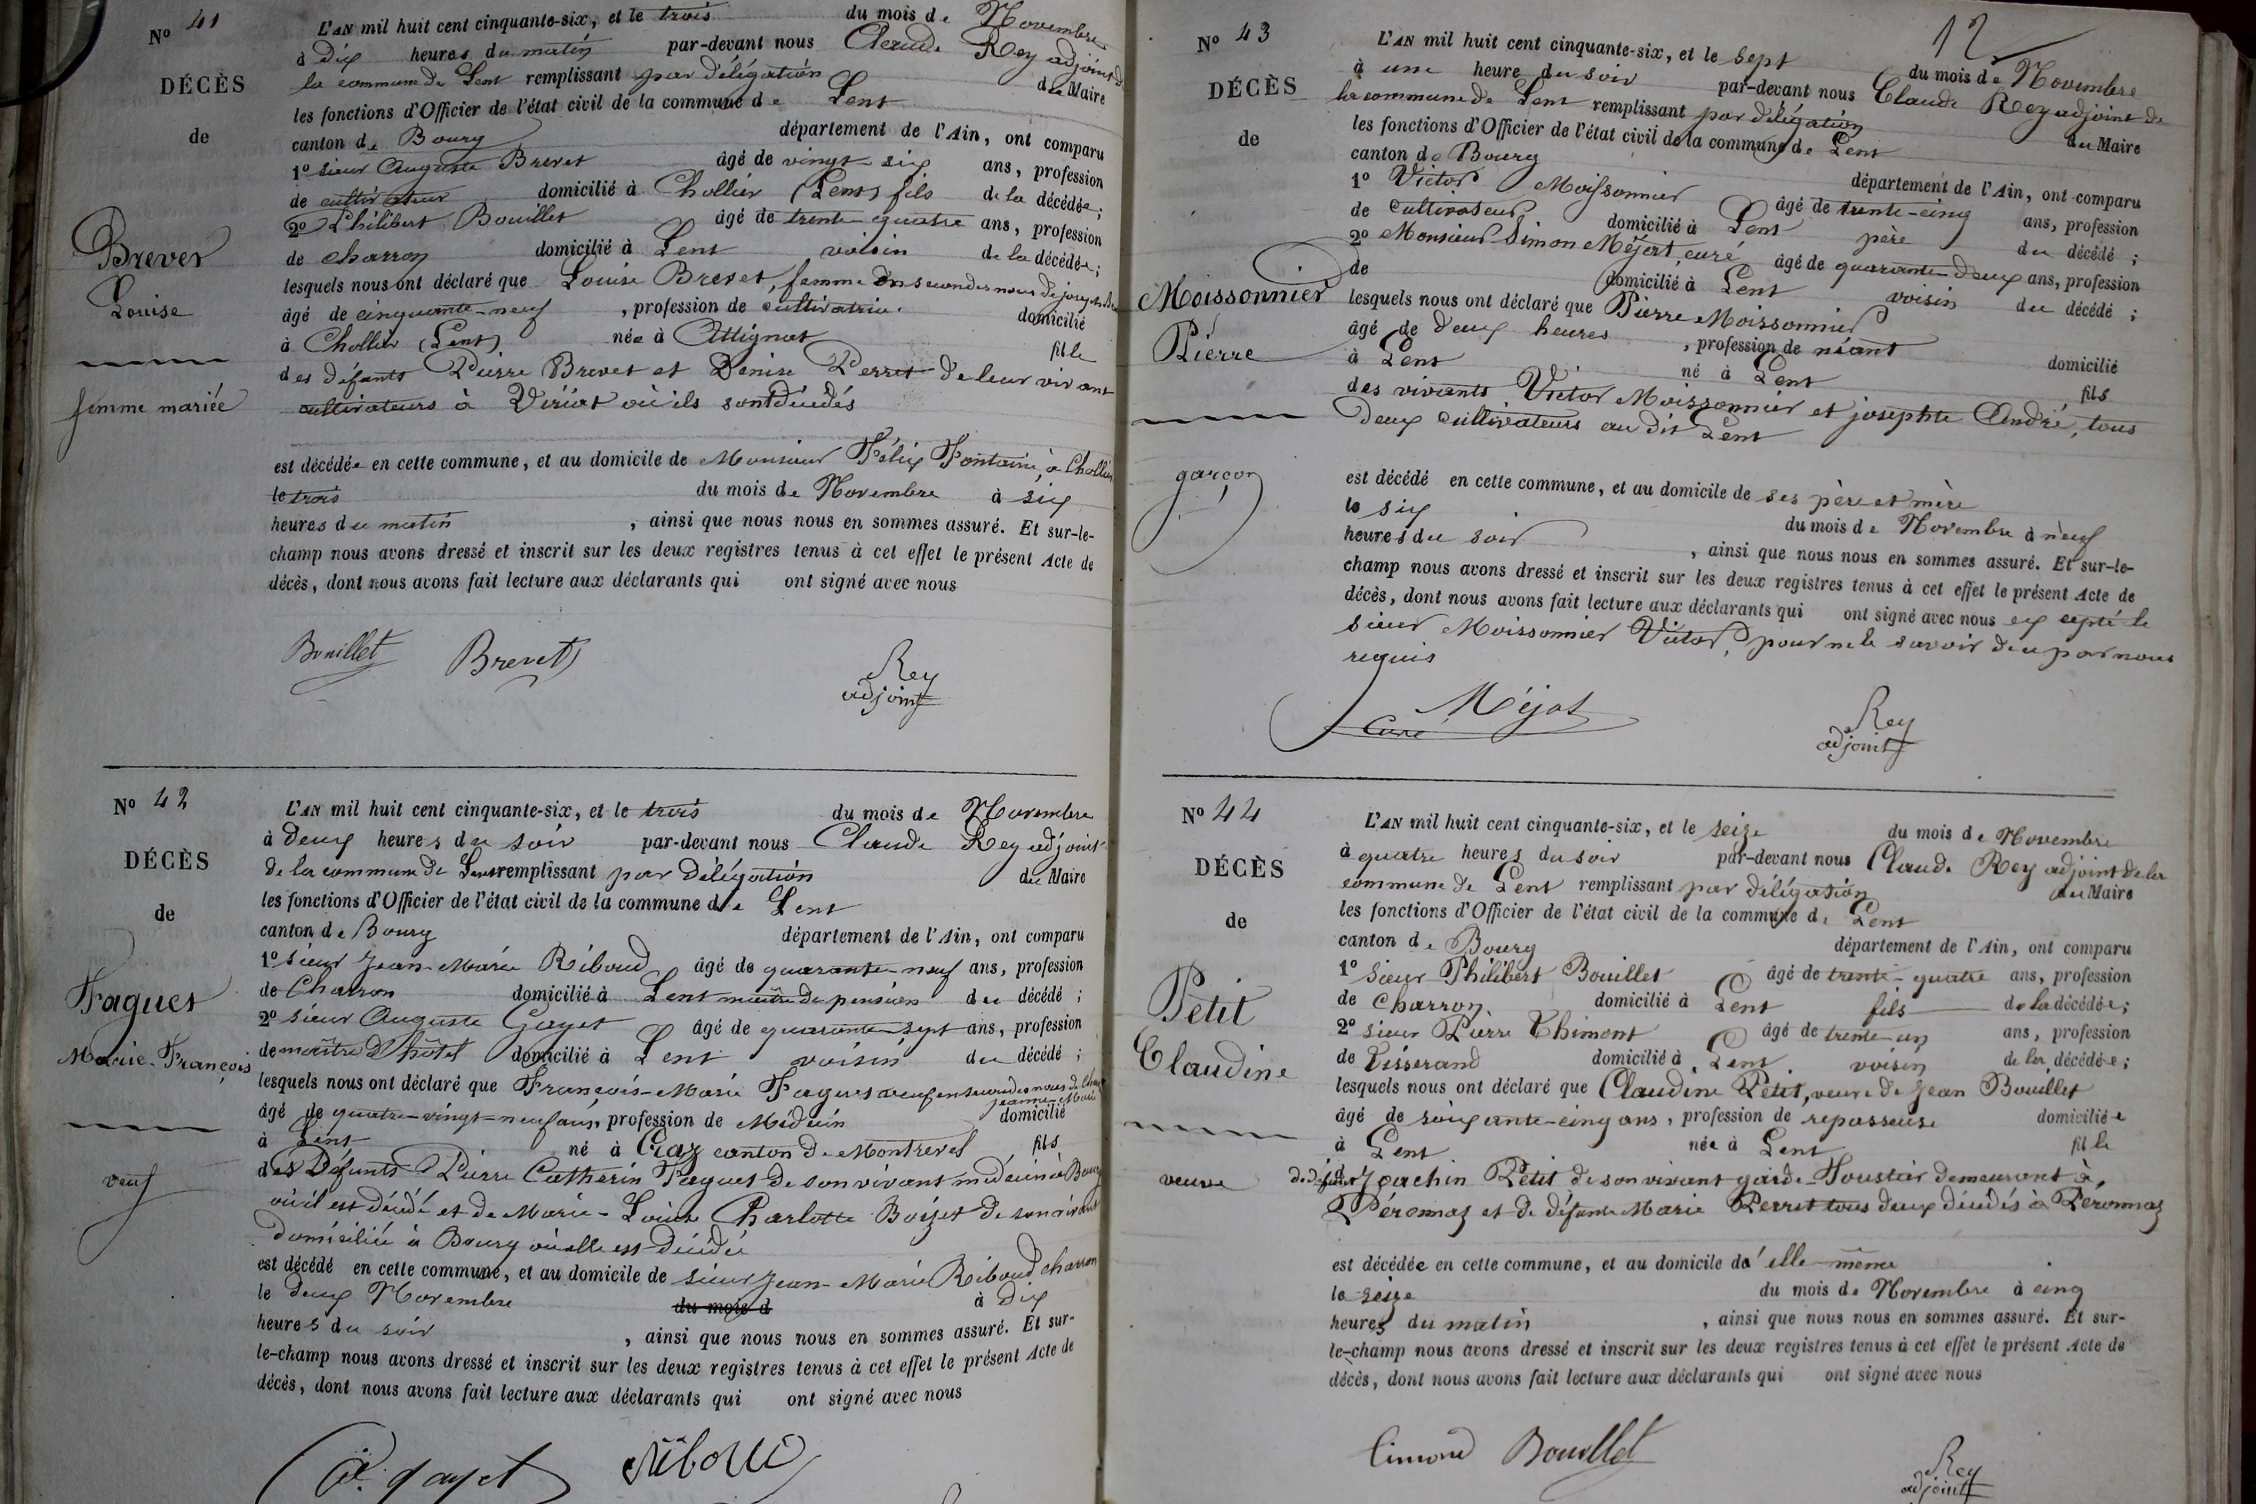 N° 41
DÉCÈS
de
Brevet
Louise
femme mariée
L'AN mil huit cent cinquante-six, et le trois du mois de Novembre
à dix heures du matin par-devant nous Claude Rey adjoint de
la commune de Lent remplissant par délégation du Maire
les fonctions d'Officier de l'état civil de la commune de Lent
canton de Bourg département de l'Ain, ont comparu
1° sieur Auguste Brevet âgé de vingt-six ans, profession
de cultivateur domicilié à Chollier (Lent) fils de la décédée;
2° Philibert Bouillet âgé de trente-quatre ans, profession
de charron domicilié à Lent voisin de la décédée;
lesquels nous ont déclaré que Louise Brevet, femme en secondes noces de joseph
âgé de cinquante-neuf, profession de cultivatrice domicilié
à Chollier (Lent) née à Attignat fille
des défunts Pierre Brevet et Denise Perret de leur vivant
cultivateurs à Viriat où ils sont décédés
est décédée en cette commune, et au domicile de Monsieur Félix Fontaine, à Chollier
le trois du mois de Novembre à six
heures du matin, ainsi que nous nous en sommes assuré. Et sur-le-
champ nous avons dressé et inscrit sur les deux registres tenus à cet effet le présent Acte de
décès, dont nous avons fait lecture aux déclarants qui ont signé avec nous
Bouillet Brevet Rey
adjoint
N° 42
DÉCÈS
de
Faguet
Marie-François
veuf
L'AN mil huit cent cinquante-six, et le trois du mois de Novembre
à deux heures du soir par-devant nous Claude Rey adjoint
de la commune de Lent remplissant par délégation du Maire
les fonctions d'Officier de l'état civil de la commune de Lent
canton de Bourg département de l'Ain, ont comparu
1° sieur Jean-Marie Riboud âgé de quarante-neuf ans, profession
de Charron domicilié à Lent maître de pension du décédé;
2° sieur Auguste Gayet âgé de quarante-sept ans, profession
de maître d'hôtel domicilié à Lent voisin du décédé;
lesquels nous ont déclaré que François-Marie Faguet veuf en secondes noces de
Jeanne-Marie
âgé de quatre-vingt-neuf ans, profession de Médecin domicilié
à Lent né à Craz canton de Montrevel fils
des Défunts Pierre Catherin Faguet de son vivant médecin à Bourg
où il est décédé et de Marie-Louise Charlotte Boizet de son vivant
domiciliée à Bourg où elle est décédée
est décédé en cette commune, et au domicile de sieur Jean-Marie Riboud charron
le deux Novembre du mois d à dix
heures du soir, ainsi que nous nous en sommes assuré. Et sur-
le-champ nous avons dressé et inscrit sur les deux registres tenus à cet effet le présent Acte de
décès, dont nous avons fait lecture aux déclarants qui ont signé avec nous
gayet Riboud
12
N° 43
DÉCÈS
de
Moissonnier
Pierre
garçon
L'AN mil huit cent cinquante-six, et le sept du mois de Novembre
à une heure du soir par-devant nous Claude Rey adjoint de
la commune de Lent remplissant par délégation du Maire
les fonctions d'Officier de l'état civil de la commune de Lent
canton de Bourg département de l'Ain, ont comparu
1° Victor Moissonnier âgé de trente-cinq ans, profession
de cultivateur domicilié à Lent père du décédé;
2° Monsieur Simon Méjat, curé âgé de quarante-deux ans, profession
de domicilié à Lent voisin du décédé;
lesquels nous ont déclaré que Pierre Moissonnier
âgé de deux heures, profession de néant domicilié
à Lent né à Lent fils
des vivants Victor Moissonnier et josephte André, tous
deux cultivateurs au dit Lent
est décédé en cette commune, et au domicile de ses père et mère
le six du mois de Novembre à neuf
heures du soir, ainsi que nous nous en sommes assuré. Et sur-le-
champ nous avons dressé et inscrit sur les deux registres tenus à cet effet le présent Acte de
décès, dont nous avons fait lecture aux déclarants qui ont signé avec nous excepté le
sieur Moissonnier Victor, pour ne le savoir de ce par nous
requis
Méjat
Curé
Rey
adjoint
N° 44
DÉCÈS
de
Petit
Claudine
veuve
L'AN mil huit cent cinquante-six, et le seize du mois de Novembre
à quatre heures du soir par-devant nous Claude Rey adjoint de la
commune de Lent remplissant par délégation du Maire
les fonctions d'Officier de l'état civil de la commune de Lent
canton de Bourg département de l'Ain, ont comparu
1° sieur Philibert Bouillet âgé de trente-quatre ans, profession
de Charron domicilié à Lent fils de la décédée;
2° sieur Pierre Thimont âgé de trente-un ans, profession
de Tisserand domicilié à Lent voisin de la décédée;
lesquels nous ont déclaré que Claudine Petit, veuve de Jean Bouillet
âgé de soixante-cinq ans, profession de repasseuse domiciliée
à Lent née à Lent fille
de défunt Joachin Petit de son vivant garde-foustier demeurant à
Péronnaz et de défunte Marie Perret tous deux décédés à Péronnaz
est décédée en cette commune, et au domicile d'elle-même
le seize du mois de Novembre à cinq
heures du matin, ainsi que nous nous en sommes assuré. Et sur-
le-champ nous avons dressé et inscrit sur les deux registres tenus à cet effet le présent Acte de
décès, dont nous avons fait lecture aux déclarants qui ont signé avec nous
Timond Bouillet Rey
adjoint